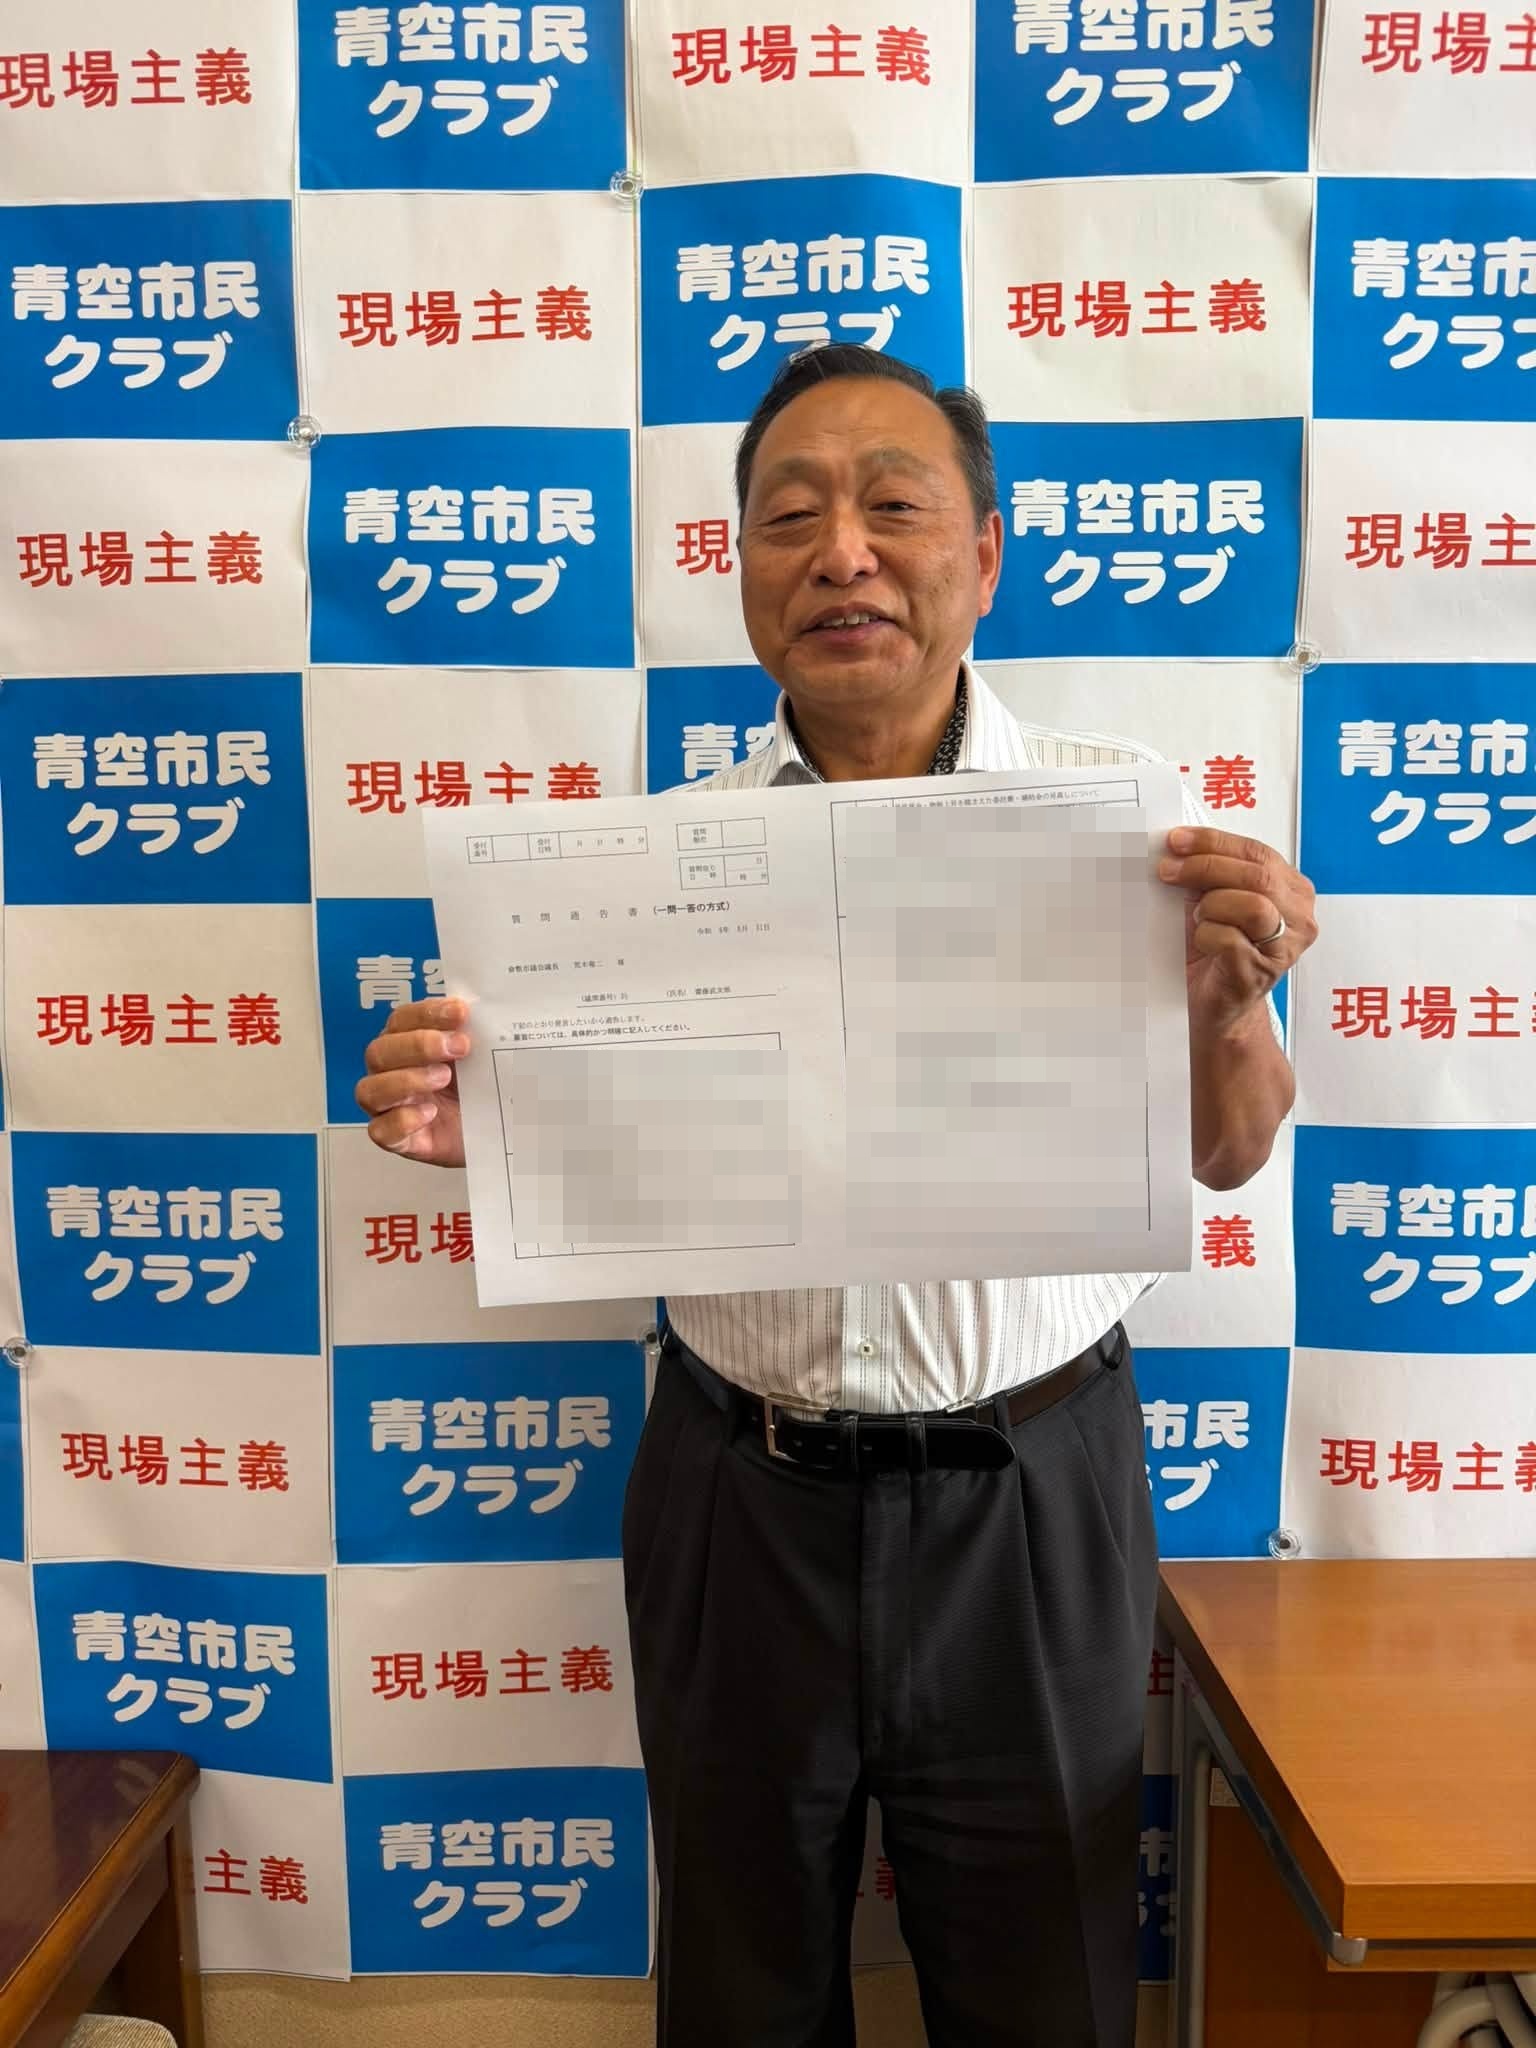 現場主義
青空市民
クラブ
現場主義
青空市民
クラブ
現場主
青空市民
クラブ
現場主義
青空市民
クラブ
現場主義
青空市
クラ
現場主義
青空市民
クラブ
現
青空市民
クラブ
現場主
青空市民
クラブ
現場主義
青空市
主義
青空市
クラブ
受付
番号
受付
日時
月 日 時 分
質問
順位
質問割り
日 時
日
時 分
質問通告書 (一問一答の方式)
倉敷市議会議長 荒木竜二 様
(議席番号) (氏名) 齋藤武次郎
下記のとおり発言したいから通告します。
※ 要旨については、具体的かつ明確に記入してください。
物価上昇を踏まえた委託費・補助金の見直しについて
現場主義
青空
現場主
青空市民
クラブ
現場
義
青空市民
クラブ
現場主義
青空市民
クラブ
市民
ブ
現場主義
青空市民
クラブ
現場主義
主
主義
青空市民
クラブ
義